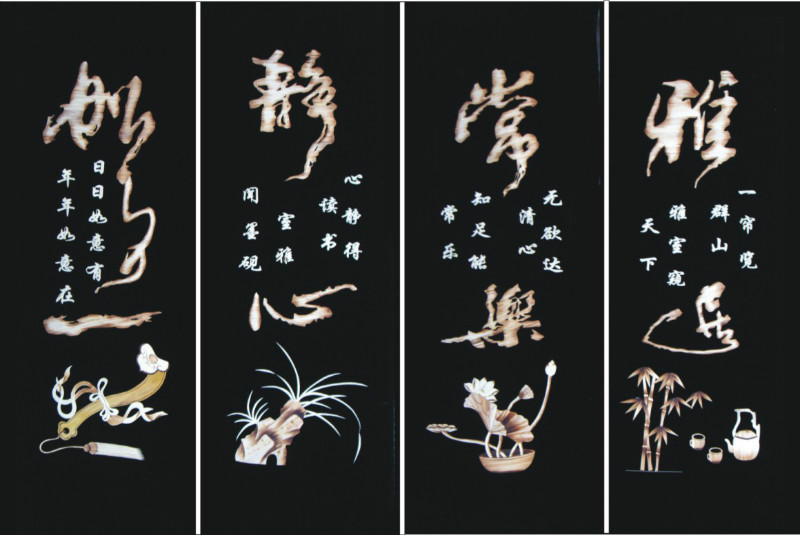 雅
一帘览
群山
雅室窥
天下
常
无欲达
清心
知足能
常乐
樂
静
心静得
读书
室雅
闻墨砚
心
日日如意有
年年如意在